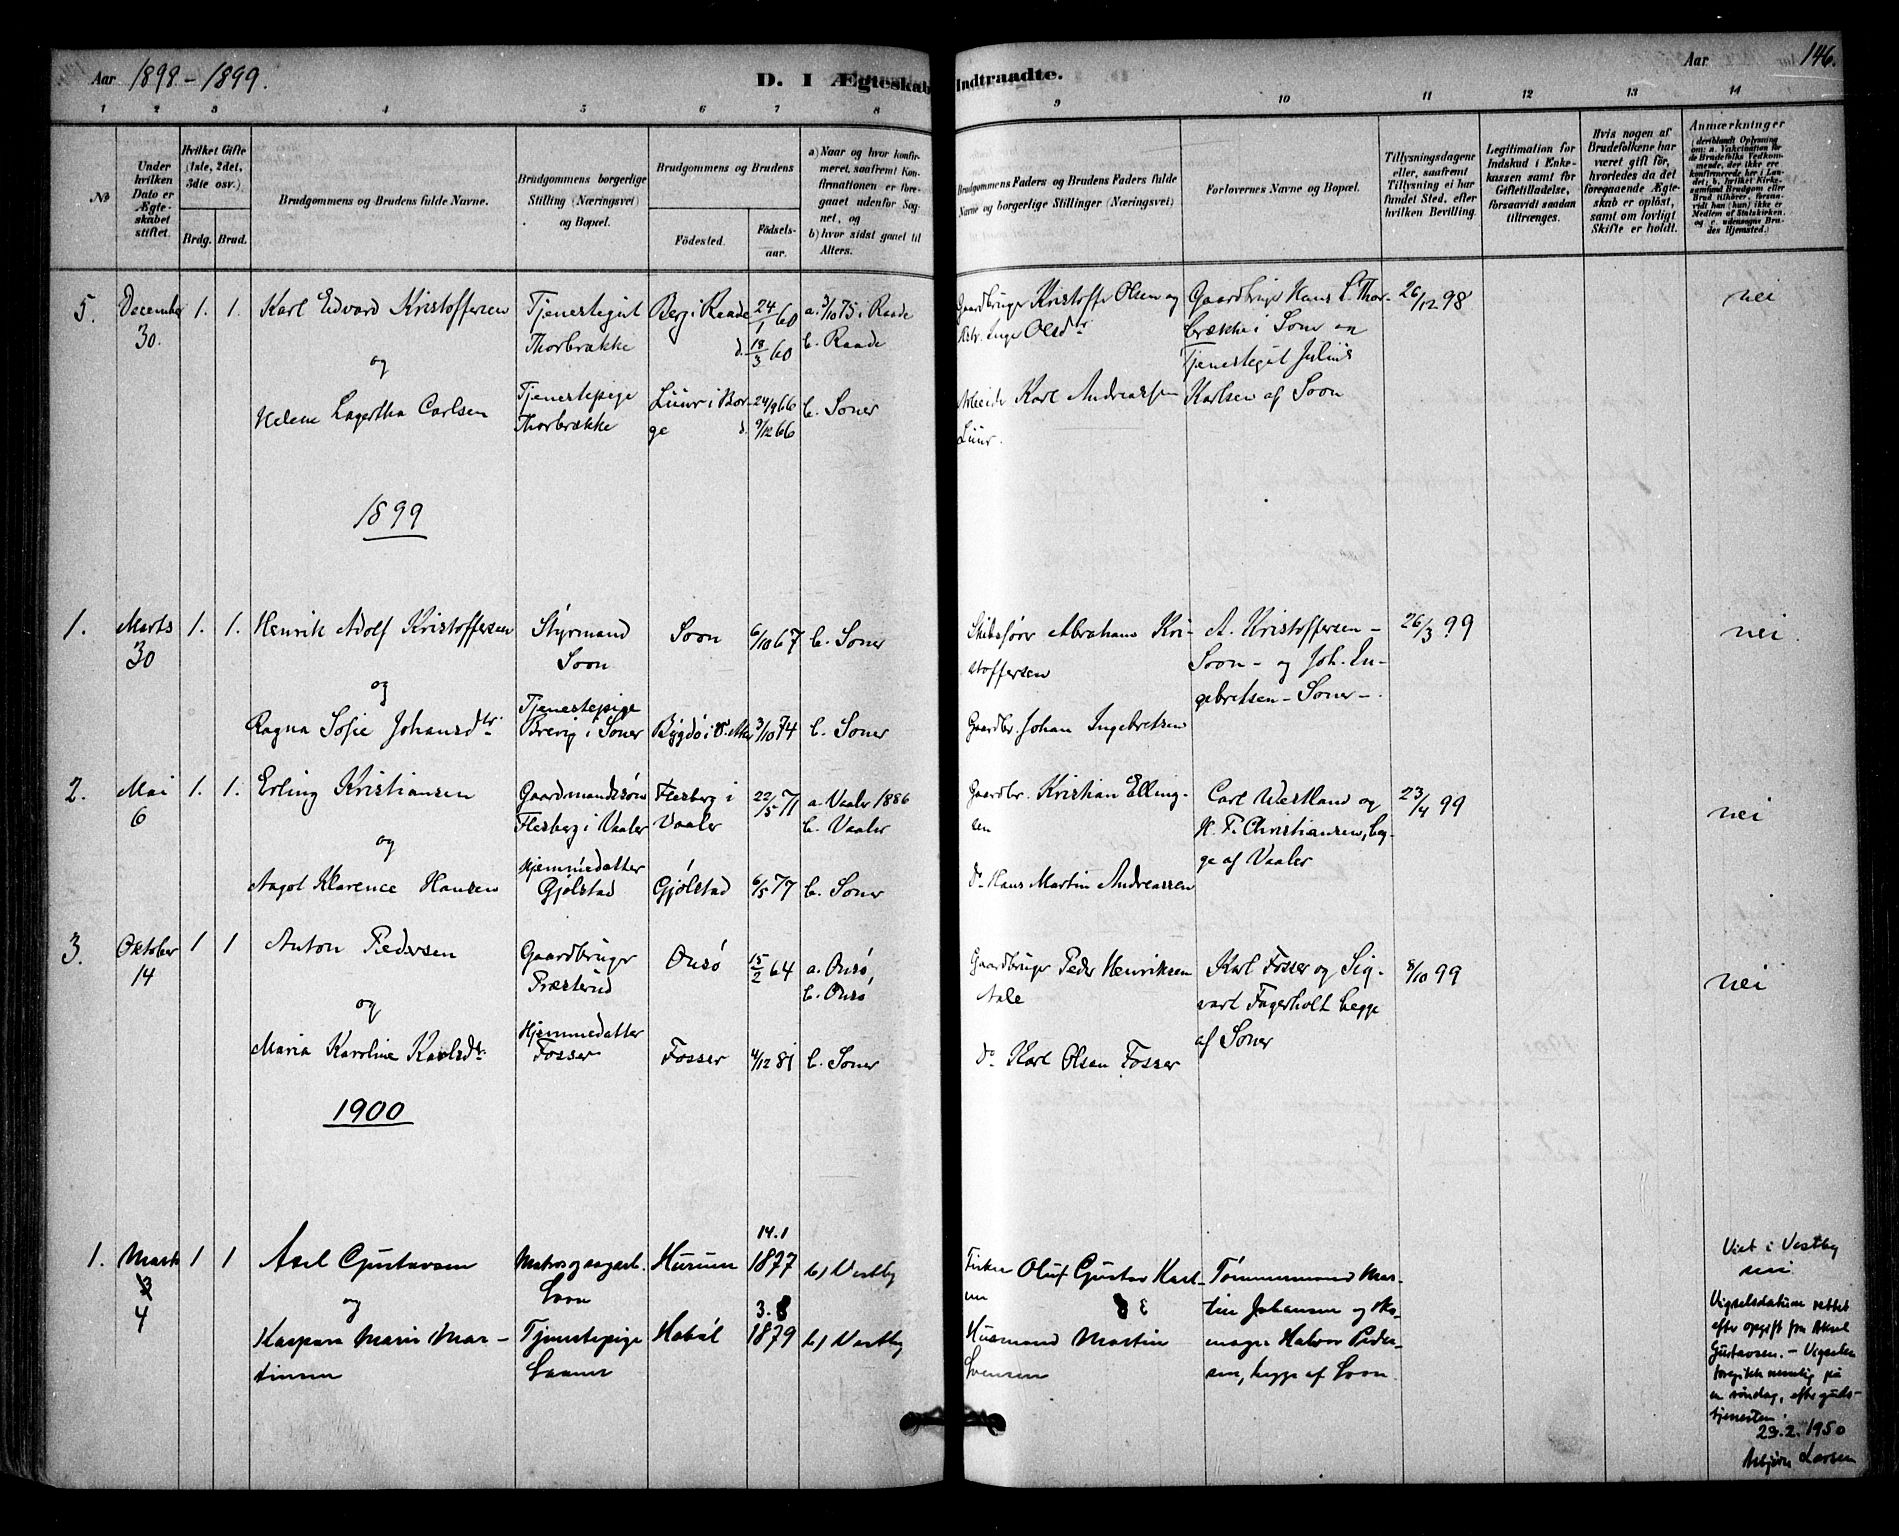 Aar 1898-1899.
D. I Ægteskab Indtraadte.
Aar 146.
1 2 3 4 5 6 7 8 9 10 11 12 13 14
No
Under hvilken Dato er Ægteskabet stiftet.
Hvilket Gifte (1ste, 2det, 3die osv.)
Brdg. Brud.
Brudgommens og Brudens fulde Navne.
Brudgommens borgerlige Stilling (Næringsvei) og Bopæl.
Brudgommens og Brudens
Födested. Födselsaar.
a) Naar og hvor konfirmeret, saafremt Konfirmationen er foregaaet udenfor Sognet, og
b) hvor sidst gaaet til Alters.
Brudgommens Faders og Brudens Faders fulde Navne og borgerlige Stillinger (Næringsvei)
Forlovernes Navne og Bopæl.
Tillysningsdagene eller, saafremt Tillysning ei har fundet Sted, efter hvilken Bevilling.
Legitimation for Indskud i Enkekassen samt for Giftetilladelse, forsaavidt saadan tiltrænges.
Hvis nogen af Brudefolkene har været gift för, hvorledes da det foregaaende Ægteskab er oplöst, samt om lovligt Skifte er holdt.
Anmærkninger (deriblandt Oplysning om: a. Vakcination for de Brudefolks Vedkommende, der ikke ere konfirmerede her i Landet; b. hvilket Kirkesamfund Brudgom eller Brud tilhörer, forsaavidt han (hun) ikke er Medlem af Statskirken, og c. udensogns Brudes Hjemsted.)
5. December 30. 1. 1. Karl Edvard Kristoffersen
Tjenestegut Thorbrække
Berg i Raade 24/1 60 d. 18/3 60
a. 3/10 75 i Raade
b. Raade
Gaardbruger Kristoffe Olsen og Inge Olsdtr
Gaardbruger Hans L. Thorbrække i Soner og Tjenestegut Julius Karlsen af Soon
26/12 98
nei
og
Helene Lagertha Carlsen
Tjenestepige Thorbrække
Luur i Borge 24/9 66 d. 9/12 66
b. Soner
Arbeider Karl Andreassen Luur.
1899
1. Marts 30 1. 1. Henrik Adolf Kristoffersen
Styrmand Soon
Soon 6/10 67 b. Soner
Skibsfører Abraham Kristoffersen
A. Kristoffersen - Soon - og Joh. Ingebretsen - Soner -.
26/3 99
nei.
og
Ragna Sofie Johansdtr.
Tjenestepige Brevig i Soner
Bygdö i V. Aker 3/10 74 b. Soner
Gaardbr. Johan Ingebretsen
2. Mai 6 1. 1. Erling Kristiansen
Gaardmandssøn Flesberg i Vaaler
Flesberg i Vaaler 22/5 71
a. Vaaler 1886
b. Vaaler
Gaardbr. Kristian Ellingsen
Carl Westland og H. F. Christiansen, begge af Vaaler
23/4 99
nei
og
Aagot Klarence Hansen
Hjemmedatter Gjølstad
Gjølstad 6/5 77 b. Soner
do Hans Martin Andreassen
3. Oktober 14 1 1 Anton Pedersen
Gaardbruger Præsterud
Onsø 15/2 64
a. Onsø,
b. Onsø
Gaardbruger Peder Henriksen Aale
Karl Fosser og Sigvart Fagerholt begge af Soner
8/10 99
nei
og
Maria Karoline Karlsdtr.
Hjemmedatter Fosser
Fosser 4/12 81 b. Soner
do Karl Olsen Fosser
1900
1. Marts 3 4 1 1 Axel Gustavsen
Matros og sagarb. Soon
Hurum 14.1 1877 b) Vestby
Fisker Oluf Gustav Karlsen
Tømmermand Martin Johansen og Skomager Halvor Pedersen, begge af Soon.
og
Kaspara Marie Martinsen
Tjenestepige Saaner
Hobøl 3.8 1879 b) Vestby
Husmand Martin Svensen
Viet i Vestby
nei
Vigselsdatum rettet
efter opgift fra Aksel
Gustavsen. - Vigselen
foregikk nemlig på
en søndag, efter guds-
tjenesten.
23.2.1950
Asbjørn Larsen